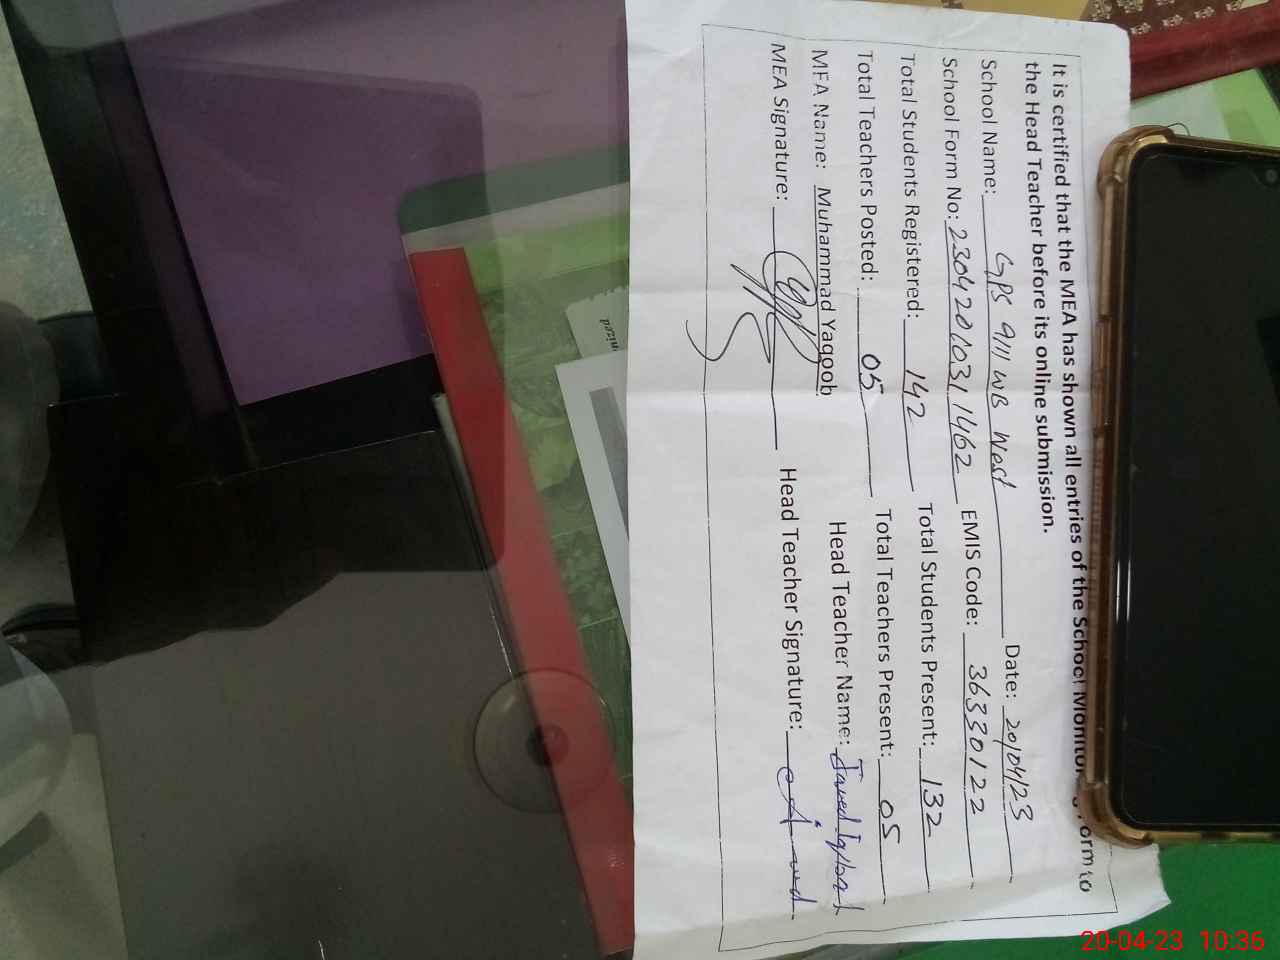 It is certified that the MEA has shown all entries of the School Monitoring Form to
the Head Teacher before its online submission.
School Name: GPS 911 WB West Date: 20/04/23
School Form No: 23042010311462 EMIS Code: 36330122
Total Students Registered: 142 Total Students Present: 132
Total Teachers Posted: 05 Total Teachers Present: 05
MEA Name: Muhammad Yaqoob Head Teacher Name: Javed Iqbal
MEA Signature: Head Teacher Signature:
20-04-23 10:36